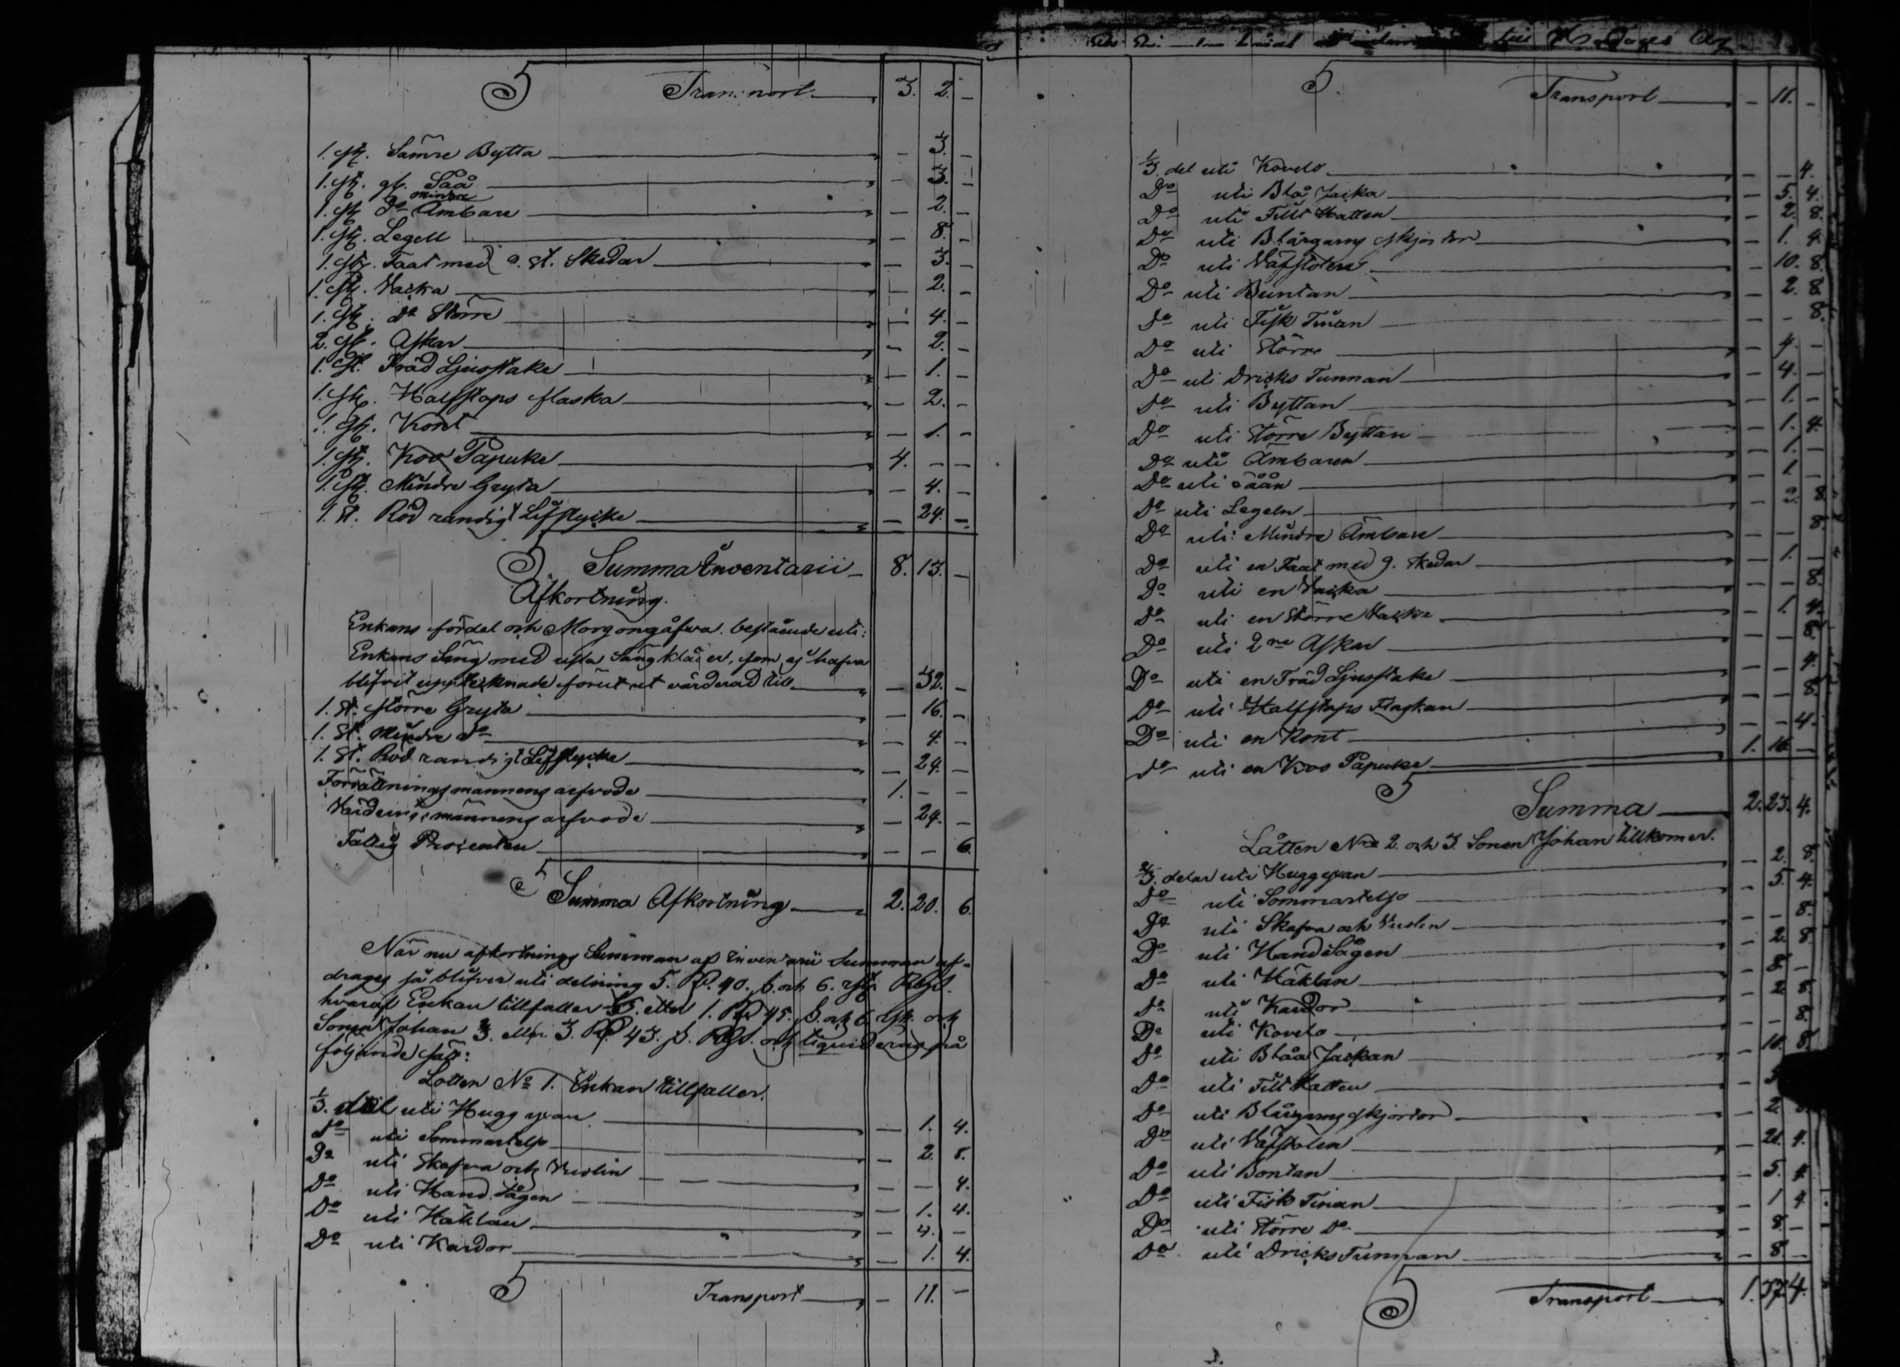 Transport 3. 2. –
1. st. Sämre Bytta – 3. –
1. st. gl. Såå – 3. –
1. st. Do mindre Ämbare – 2. –
1. st. Legell – 8. –
1. st. Faat med 9. st. Skedar – 3. –
1. st. Vacka – 2. –
1. st. Do Större – 4. –
2. st. Askar – 2. –
1. st. Träd Ljusstake – 1. –
1. st. Halfstops flaska – 2. –
1. st. Kont – 1. –
1. st. Koo Papuke 4. – –
1. st. Mindre Gryta – 4. –
1. st. Röd randigt Lifstycke – 24. –
Summa Inventarii 8. 13. –
Afkortning.
Enkans fördel och Morgongåfva bestående uti:
Enkans Säng med usla Sängkläder, som ej hafva
blifvit upptecknade förut värderad till – 32. –
1. st. större Gryta – 16. –
1. st. Mindre do – 4. –
1. st. Röd randigt Lifstycke – 24. –
Förrättningsmannens arfvode 1. – –
Värderingsmännens arfvode – 24. –
Fattig Procenten – – 6.
Summa Afkortning 2. 20. 6.
När nu afkortnings Summan af Inventarii Summan af-
drages så blifver uti delning 5. Rd. 40. s. och 6. rst.
hvaraf Enkan tillfaller 1/3. eller 1. Rd 45. s. och 6. rst. och
Sonen Johan 2/3. eller 3. Rd 43. s. och liquideras på
följande sätt:
Lotten No 1. Enkan tillfaller.
1/3. del uti Huggyxan – 1. 4.
Do uti Sommartelso – 2. 8.
Do uti Skafva och – – 4.
Do uti Hand Sågen – 1. 4.
Do uti Häklan – 4. –
Do uti Kardor – 1. 4.
Transport – 11. –
Transport – 11. –
1/3 del uti Kovelo – – 4.
Do uti Blå Jacka – 5. 4.
Do uti Filt Hatten – 2. 8.
Do uti Blårgarns skjortor – 1. 4.
Do uti Väfstolen – 10. 8.
Do uti Buntan – 2. 8.
Do uti Fisk Tinan – – 8.
Do uti Större – 4. –
Do uti Dricks Tunnan – 4. –
Do uti Byttan – 1. –
Do uti Större Byttan – 1. 4.
Do uti Ämbaren – 1. –
Do uti Såån – 1. –
Do uti Legeln – 2. 8.
Do uti Mindre Ämbare – – 8.
Do uti en Faat med 9. Skedar – 1. –
Do uti en Vacka – – 8.
Do uti en Större Vacka – 1. 4.
Do uti 2ne Askar – – 8.
Do uti en Träd Ljusstake – – 4.
Do uti Halfstops Flaskan – – 8.
Do uti en Kont – – 4.
Do uti en Koo Papuke 1. 16. –
Summa 2. 23. 4.
Låtten No 2 och 3 Sonen Johan tillkomer.
2/3. delar uti Huggyxan – 2. 8.
Do uti Sommartelso – 5. 4.
Do uti Skafva och – – 8.
Do uti Handsågen – 2. 8.
Do uti Häklan – 8. –
Do uti Kardor – 2. 8.
Do uti Kovelo – – 8.
Do uti Blåa Jackan – 10. 8.
Do uti Filt Hatten – 5
Do uti Blårgarns skjortor – 2
Do uti Väfstolen – 21. 4.
Do uti Bontan – 5. 4.
Do uti Fisk Tinan – 1 4
Do uti Större Do – 8. –
Do uti Dricks Tunnan – 8 –
Transport 1. 37. 4.